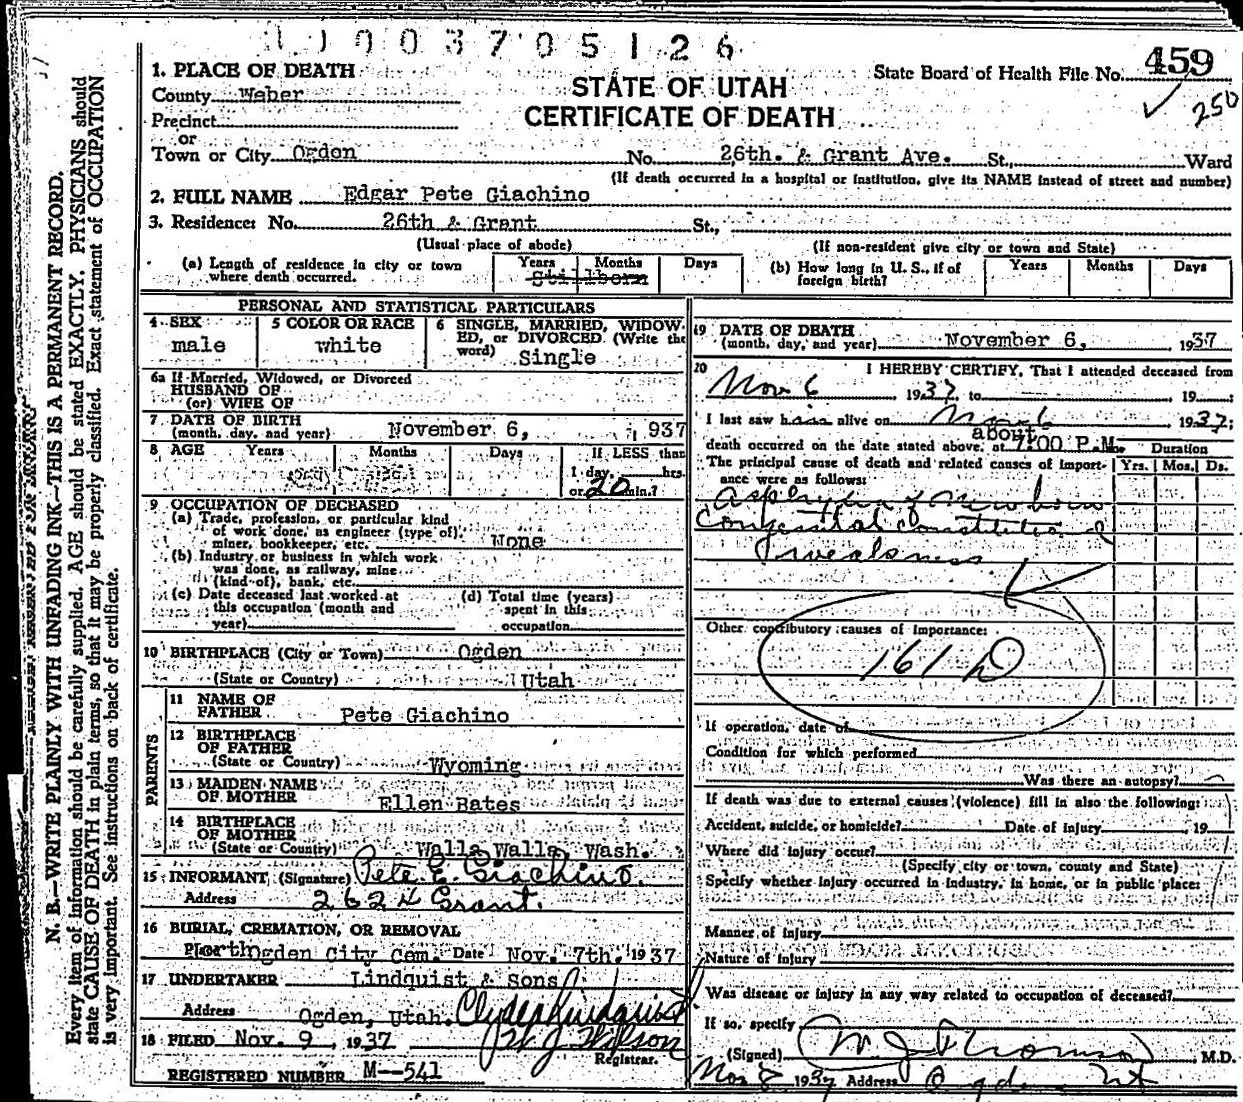 1003705126
459
250
State Board of Health File No.
STATE OF UTAH
CERTIFICATE OF DEATH
1. PLACE OF DEATH
County Weber
Precinct
or
Town or City Ogden No. 26th. & Grant Ave. St., Ward
(If death occurred in a hospital or institution, give its NAME instead of street and number)
2. FULL NAME Edgar Pete Giachino
3. Residence: No. 26th & Grant St.,
(Usual place of abode) (If non-resident give city or town and State)
(a) Length of residence in city or town where death occurred. Years Months Days
Stillborn
(b) How long in U. S., if of foreign birth? Years Months Days
PERSONAL AND STATISTICAL PARTICULARS
4 SEX male
5 COLOR OR RACE white
6 SINGLE, MARRIED, WIDOW-
ED, or DIVORCED. (Write the
word) Single
6a If Married, Widowed, or Divorced
HUSBAND OF
(or) WIFE OF
7 DATE OF BIRTH
(month, day, and year) November 6, 1937
8 AGE Years Months Days If LESS than
1 day hrs.
or 20 min.?
9 OCCUPATION OF DECEASED
(a) Trade, profession, or particular kind
of work done, as engineer (type of),
miner, bookkeeper, etc. None
(b) Industry or business in which work
was done, as railway, mine
(kind of), bank, etc.
(c) Date deceased last worked at
this occupation (month and
year)
(d) Total time (years)
spent in this
occupation
10 BIRTHPLACE (City or Town) Ogden
(State or Country) Utah
PARENTS
11 NAME OF
FATHER Pete Giachino
12 BIRTHPLACE
OF FATHER
(State or Country) Wyoming
13 MAIDEN NAME
OF MOTHER Ellen Bates
14 BIRTHPLACE
OF MOTHER
(State or Country) Walla Walla Wash.
15 INFORMANT (Signature) Pete E. Giachino.
Address 2624 Grant.
16 BURIAL, CREMATION, OR REMOVAL
North Ogden City Cem. Date Nov. 7th. 1937
17 UNDERTAKER Lindquist & Sons
Address Ogden, Utah. Clyde Lindquist
18 FILED Nov. 9, 1937 W J Wilson
Registrar.
REGISTERED NUMBER M--541
19 DATE OF DEATH
(month, day, and year) November 6, 1937
20 I HEREBY CERTIFY, That I attended deceased from
Nov 6 1937, to 19
I last saw him alive on Nov 6 1937;
about
death occurred on the date stated above, at 7:00 P.M.
Duration
Yrs. Mos. Ds.
The principal cause of death and related causes of import-
ance were as follows:
Asphyxia of Newborn
Congenital constitutional
weakness
Other contributory causes of importance:
161
If operation, date of
Condition for which performed
Was there an autopsy?
If death was due to external causes (violence) fill in also the following:
Accident, suicide, or homicide? Date of injury 19
Where did injury occur?
(Specify city or town, county and State)
Specify whether injury occurred in industry, in home, or in public place:
Manner of injury
Nature of injury
Was disease or injury in any way related to occupation of deceased?
If so, specify
(Signed) W J Thomson M.D.
Nov 8 1937 Address Ogden Ut
N. B.—WRITE PLAINLY WITH UNFADING INK—THIS IS A PERMANENT RECORD.
Every item of information should be carefully supplied. AGE should be stated EXACTLY. PHYSICIANS should
state CAUSE OF DEATH in plain terms, so that it may be properly classified. Exact statement of OCCUPATION
is very important. See instructions on back of certificate.